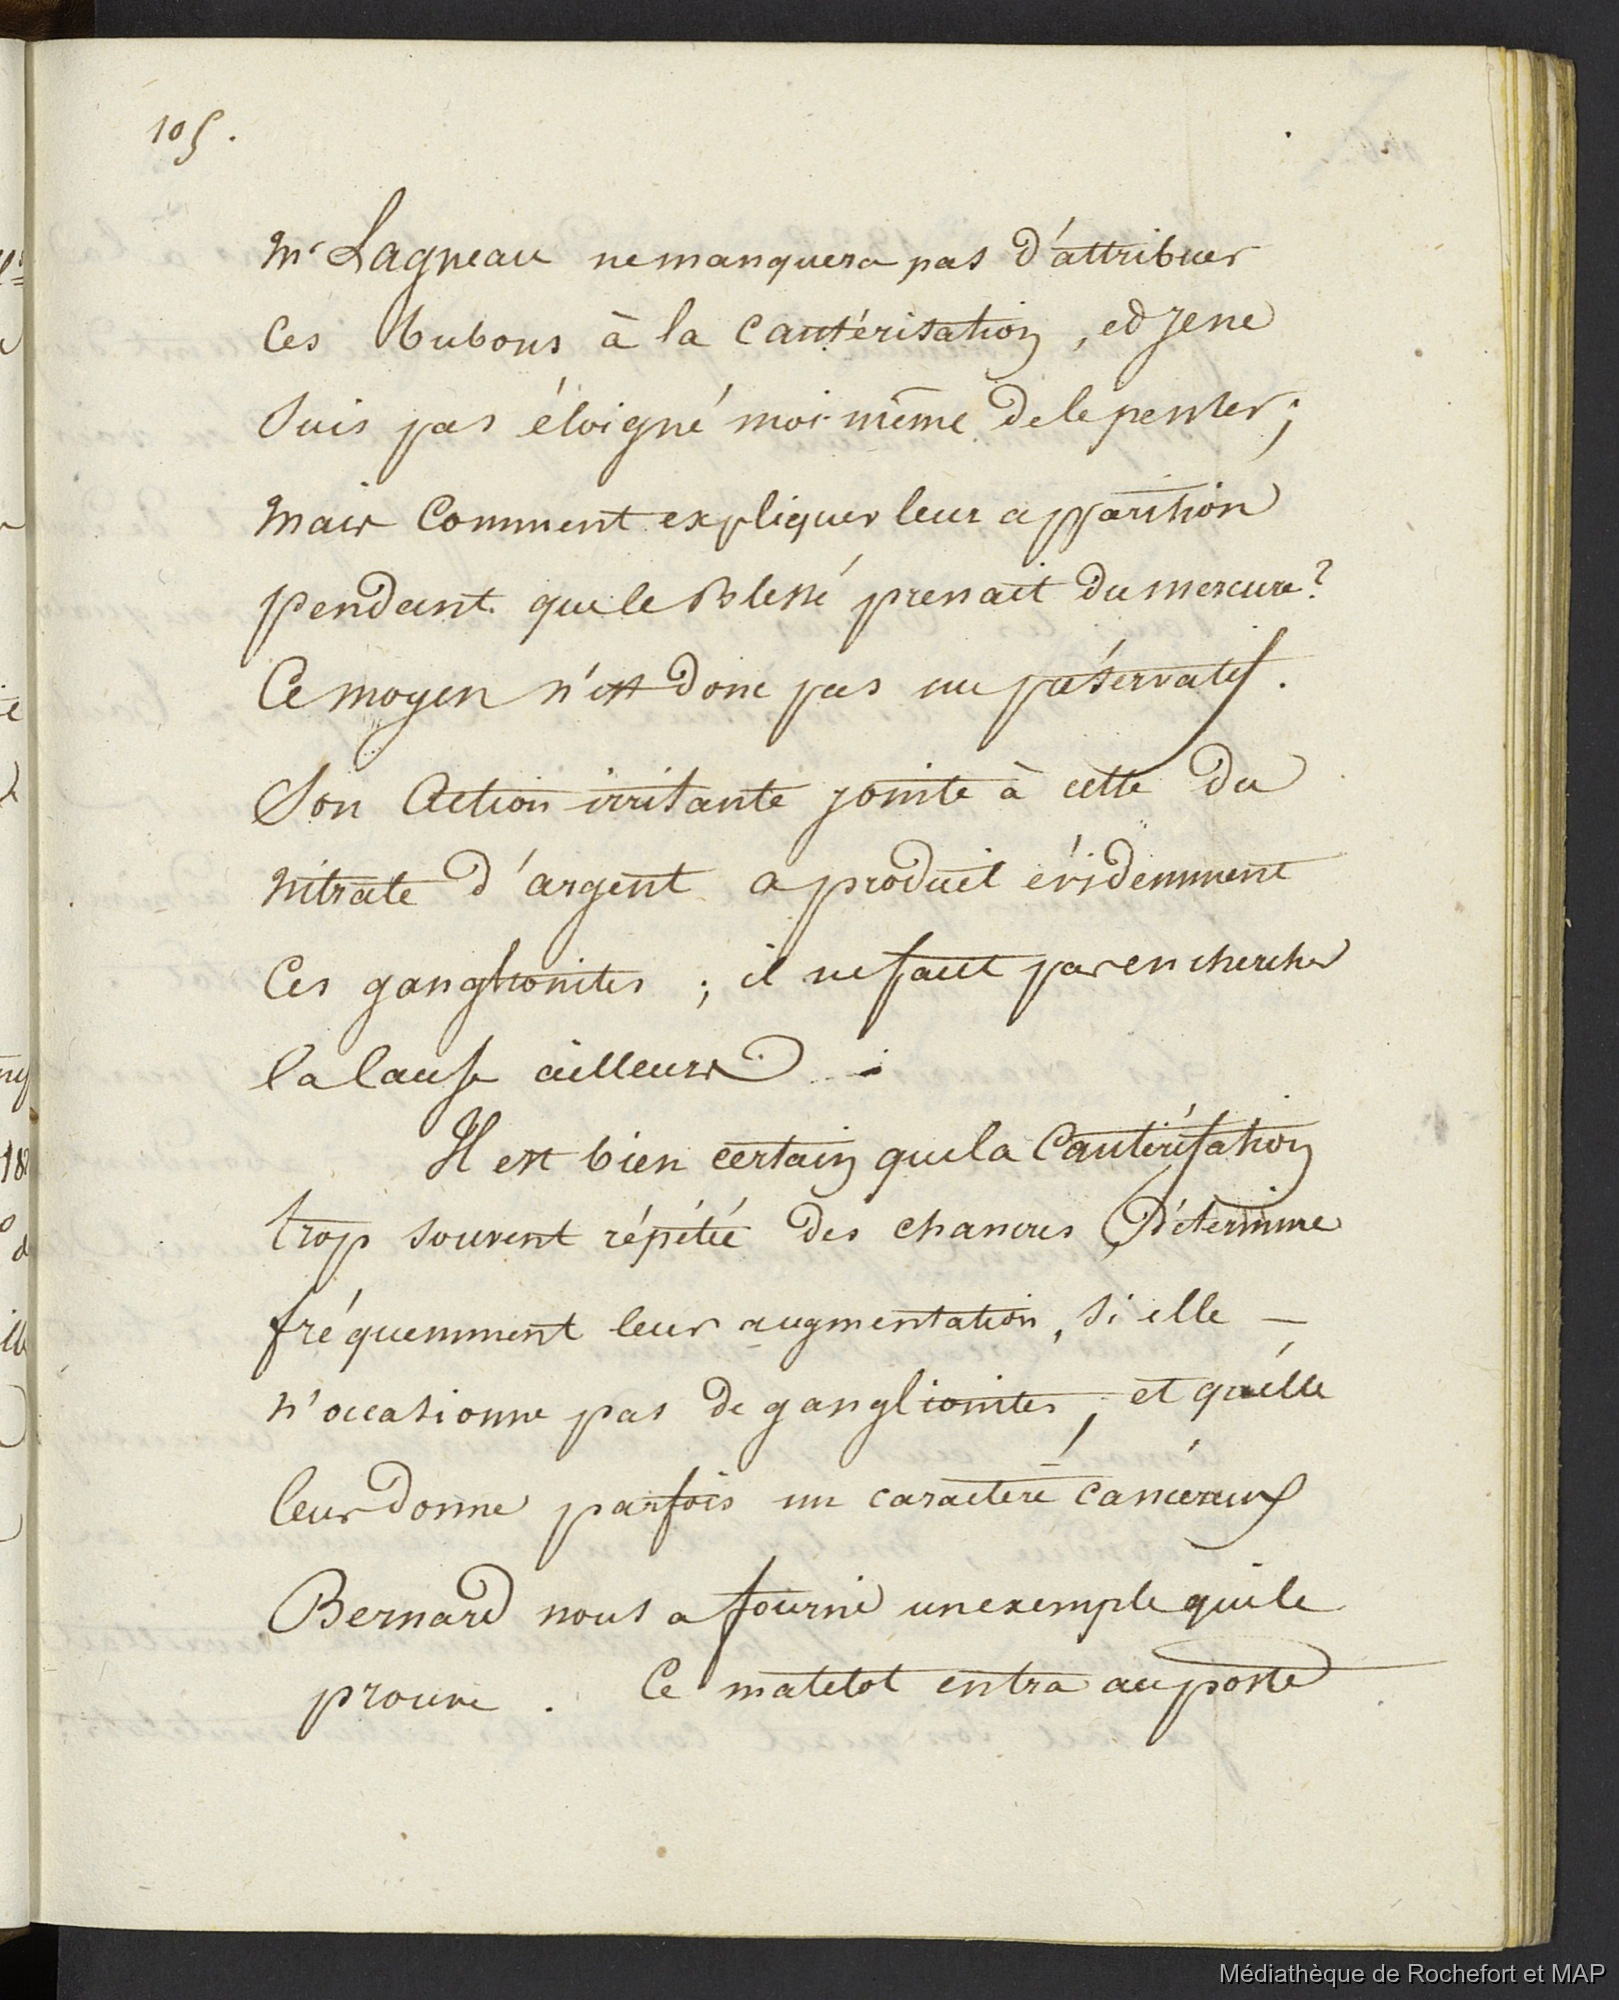 105.
Mr Lagneau ne manquera pas d'attribuer
ces bubons à la cautérisation, et je ne
suis pas éloigné moi-même de le penser;
mais comment expliquer leur apparition
pendant que le blessé prenait du mercure?
Ce moyen n'est donc pas un préservatif.
Son action irritante jointe à cette du
nitrate d'argent a produit évidemment
ces ganglionites; il ne faut pas en chercher
la cause ailleurs.
Il est bien certain que la cautérisation
trop souvent répétée des chancres détermine
fréquemment leur augmentation, si elle —
n'occasionne pas de ganglionites, et qu'elle
leur donne parfois un caractère cancéreux
Bernard nous a fourni un exemple qui le
prouve. Ce matelot entra au poste
Médiathèque de Rochefort et MAP